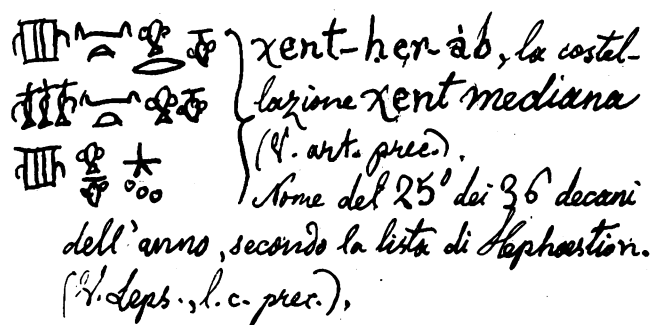 χent-her-àb, la costel-
lazione χent mediana
(V. art. prec.).
Nome del 25º dei 36 decani
dell'anno, secondo la lista di Hephaestion.
(V. Leps., l. c. prec.).